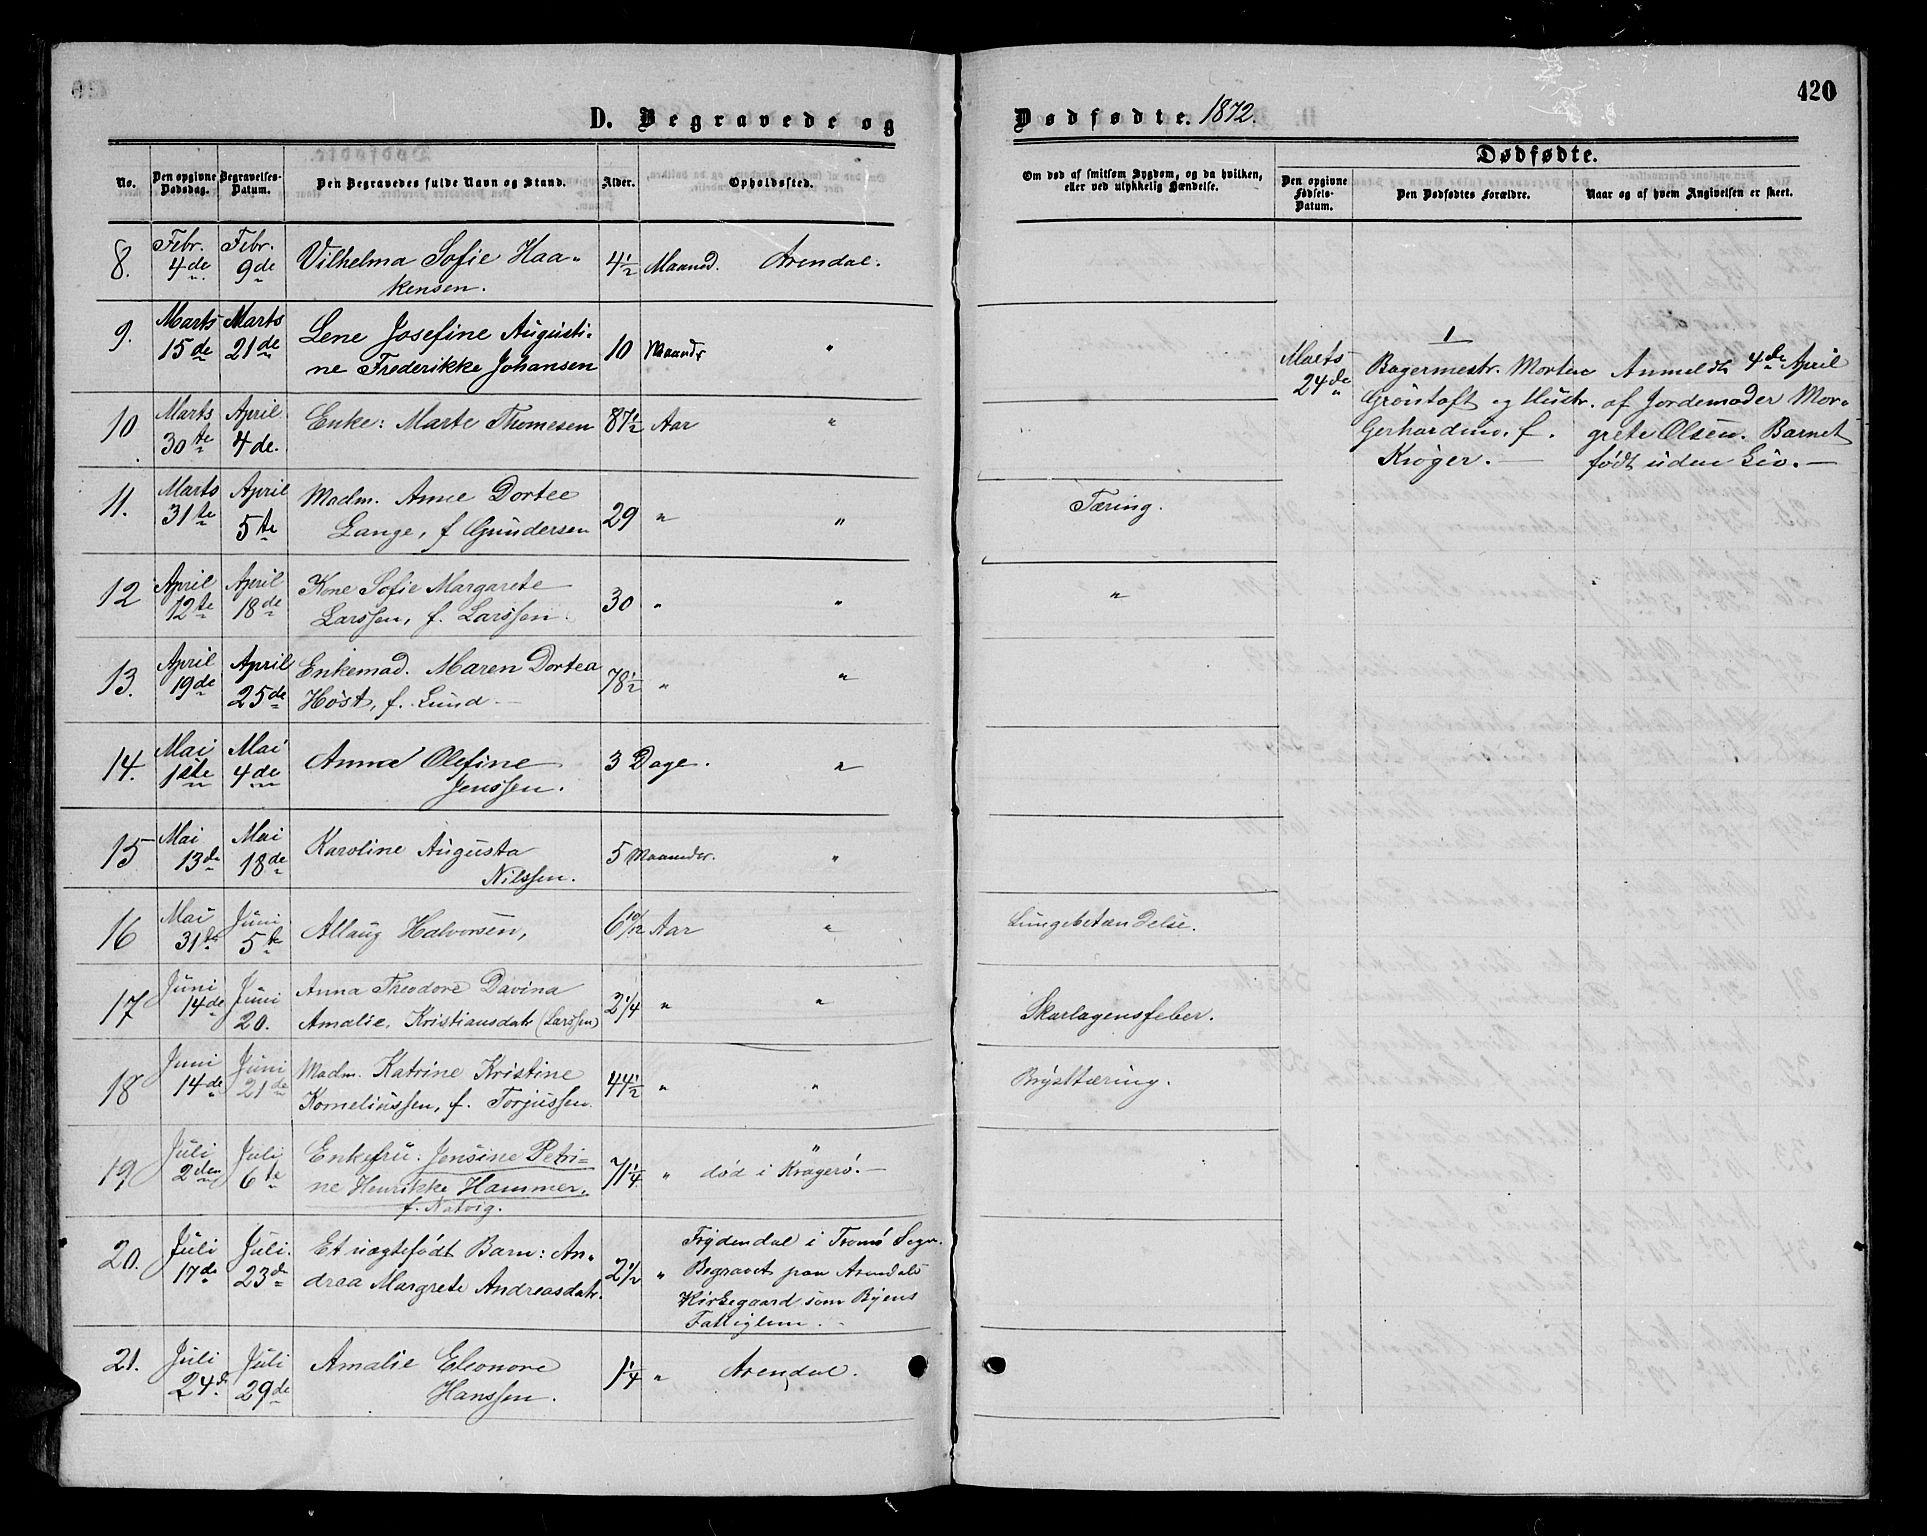 420
D. Begravede og Dødfødte. 1872.
Dødfødte.
No.
Den opgivne Dødsdag.
Begravelses-Datum.
Den Begravedes fulde Navn og Stand.
Alder.
Opholdssted.
Om død af smitsom Sygdom, og da hvilken, eller ved ulykkelig Hændelse.
Den opgivne Fødsels-Datum.
Den Dødfødtes Forældre.
Naar og af hvem Angivelsen er skeet.
8. Febr. 4de Febr. 9de Vilhelma Sofie Haa-
kensen. 4½ Maaned. Arendal.
9. Marts 15de Marts 21de Lene Josefine Augusti-
ne Frederikke Johansen 10 Maander "
10 Marts 30te April 4de. Enke: Marte Thomesen 87½ Aar "
11. Marts 31te April 5te Madm. Anne Dortee
Lange, f. Gundersen 29 " " Tæring.
12 April 12te April 18de Kone Sofie Margarete
Larssen, f. Larssen. 30 " " "
13. April 19de April 25de Enkemad. Maren Dortea
Høst, f. Lund. 78½ " "
14. Mai 1ste Mai 4de Anna Olefine
Jenssen. 3 Dage. "
15 Mai 13de Mai 18de Karoline Augusta
Nilssen. 5 Maaneder. "
16 Mai 31te Juni 5te Allaug Halvorsen, 6 10/12 Aar " Lungebetændelse.
17 Juni 14de Juni 20. Anna Theodore Davina
Amalie. Kristiansdatr (Larssen) 2¼ " " Skarlagensfeber.
18 Juni 14de Juni 21de Madm. Katrine Kristine
Kornelinssen, f. Torjussen. 44½ " " Brysttæring.
19 Juli 2den Juli 6te Enkefru: Jensine Petri-
ne Henrikke Hammer.
f. Natvig. 71¼ " " død i Kragerø.
20. Juli 17de Juli. 23de Et uægtefødt Barn: An-
draa Margrete Andreasdatr. 2½ " Frydendal i Tromø Sogn.
Begravet paa Arendals
Kirkegaard som Byens
Fattiglem.
21. Juli 24de Juli 29de Amalie Eleonore
Hanssen. 1¼ " Arendal.
1
Marts 24de
Bagermestr. Morten
Grøntoft og Hustr.
Gerhardine, f.
Krøger.
Anmeldt 4de April
af Jordemoder Mar-
grete Olsen. Barnet
født uden Liv.